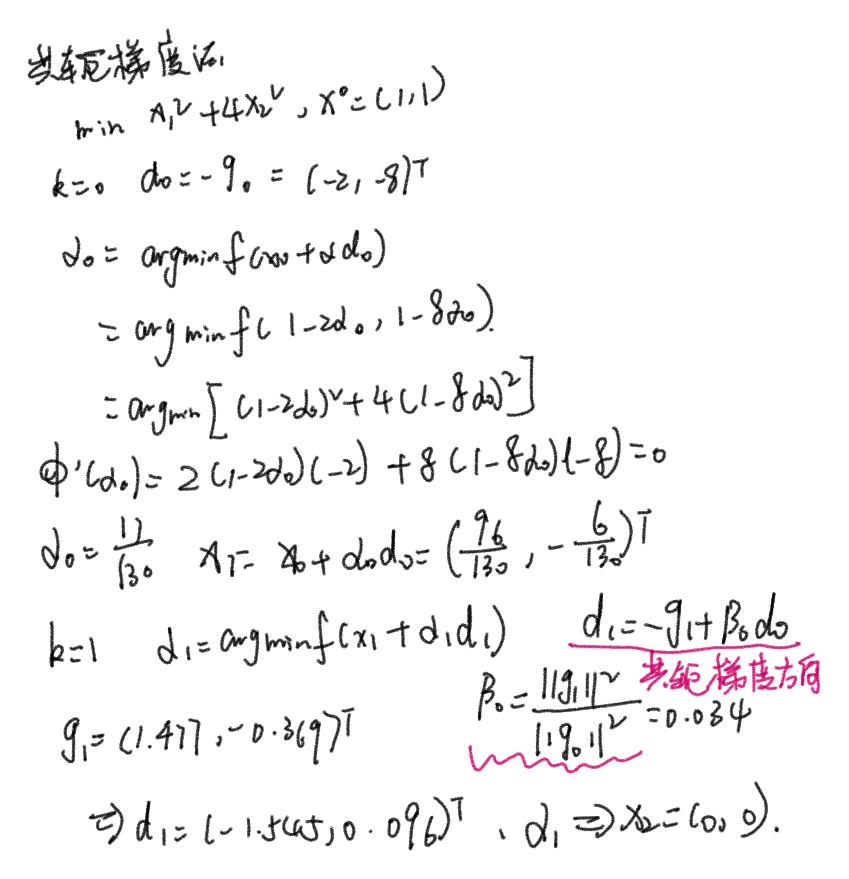 共轭梯度法
min x₁² + 4x₂², x⁰ = (1,1)
k=0 d₀ = -g₀ = (-2, -8)ᵀ
α₀ = argmin f(x₀ + αd₀)
= argmin f(1-2α₀, 1-8α₀)
= argmin [(1-2α₀)² + 4(1-8α₀)²]
φ'(α₀) = 2(1-2α₀)(-2) + 8(1-8α₀)(-8) = 0
α₀ = 17/130 x₁ = x₀ + α₀d₀ = (96/130, -6/130)ᵀ
k=1 α₁ = argmin f(x₁ + α₁d₁) d₁ = -g₁ + β₀d₀
共轭梯度方向
g₁ = (1.477, -0.369)ᵀ β₀ = ||g₁||²/||g₀||² = 0.034
⇒ d₁ = (-1.545, 0.096)ᵀ、α₁ ⇒ x₂ = (0, 0).